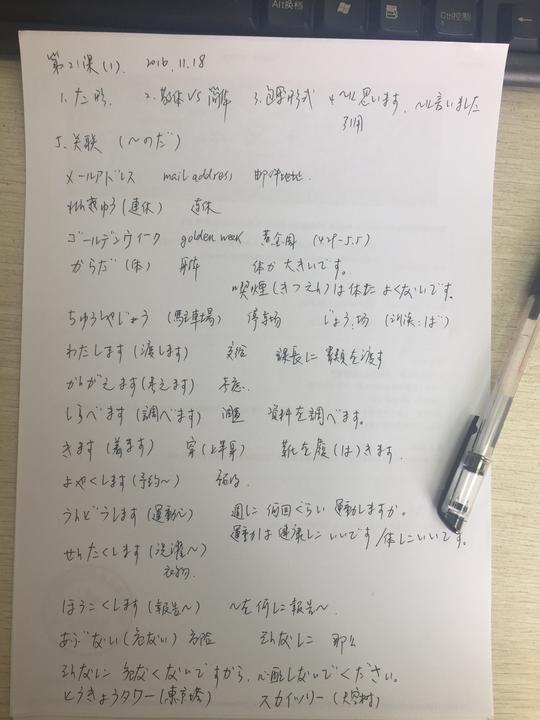 Alt换档
Ctrl控制
第21课(1). 2016.11.18
1. た形. 2. 敬体VS简体 3. 4. ~と思います、~と言いました
引用
5. 关联 (~のだ)
メールアドレス mail address 邮件地址.
れんきゅう(連休) 连休
ゴールデンウィーク golden week 黄金周 (4.29-5.5)
からだ(体) 身体 体が大きいです。
喫煙(きつえん)は体によくないです。
ちゅうしゃじょう (駐車場) 停车场 じょう:场 (训读:ば)
わたします(渡します) 交给 課長に書類を渡す
かんがえます(考えます) 考虑.
しらべます(調べます) 调查 資料を調べます。
きます(着ます) 穿(上半身) 靴を履(は)きます.
よやくします(予約~) 预约
うんどうします(運動~) 週に何回ぐらい運動しますか。
運動は健康にいいです/体にいいです。
せんたくします(洗濯~)
衣物.
ほうこくします(報告~) ~を何に報告~.
あぶない(危ない) 危险 そんなに 那么
そんなに危なくないですから、心配しないでください。
とうきょうタワー(東京塔) スカイツリー(天空树)